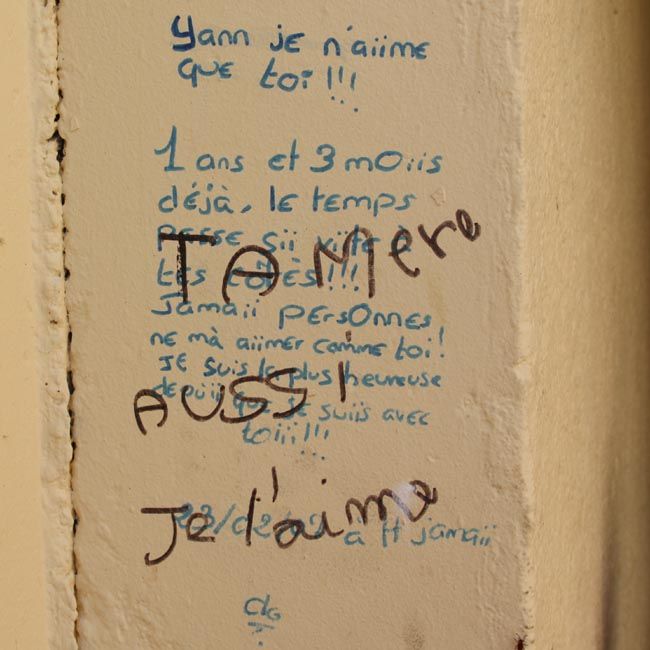 Yann je n'aiime
que toi!!!...
1 ans et 3 mOiis
déjà, le temps
passe sii viite à
TA Mere
tes côtés!!!
Jamaii persOnnes
ne mà aiimer comme toi!
JE suis la plus heureuse
depuiis que je suiis avec
AUSSI
toiii!!!...
Je l'aime
23/02/09 à tt jamaii